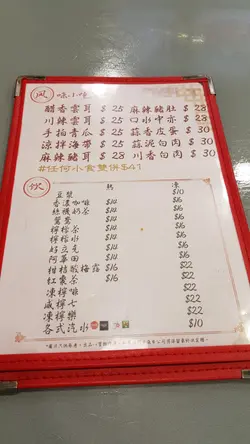 風 味小吃
醋香雲耳 $25 麻辣豬肚 $28
川辣雲耳 $25 口水牛𦟌 $28
手拍青瓜 $25 蒜香皮蛋 $30
涼拌海帶 $25 蒜泥白肉 $30
麻辣豬耳 $28 川香白肉 $30
#任何小食雙併$41
飲 熱 凍
豆漿 $10
香濃咖啡 $14 $16
絲襪奶茶 $14 $16
鴛鴦 $14 $16
檸檬茶 $14 $16
檸檬水 $14 $16
好立克 $14 $16
阿華田 $14 $16
柑桔酸梅露 $16 $22
紅棗茶 $16
凍檸啡 $22
咸檸七 $22
凍檸樂 $22
各式汽水 $10